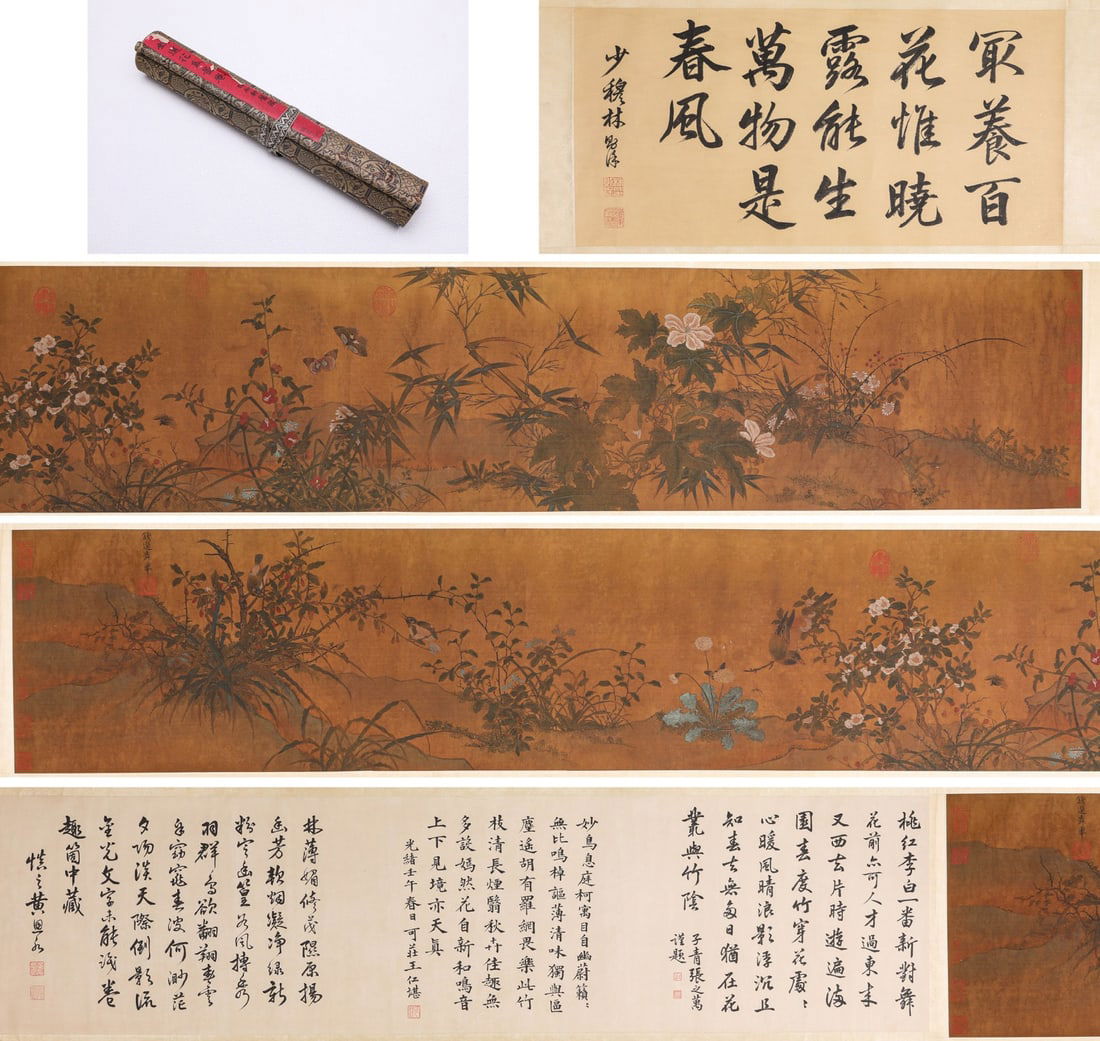 冣養百
花惟曉
露能生
萬物是
春風
少穆林則徐
錢選舜舉
桃紅李白一番新對舞
花前亦可人才過東来
又西去片時遊遍海
園春度竹穿花處〻
心暖風晴浪影浮沉且
知春去無多日猶在花
叢與竹陰
子青張之萬
謹題
妙鳥息庭柯寓目自幽蔚籟〻
無比鳴棹謳薄清味獨與區
塵遙胡有羅網畏樂此竹
枝清長煙翳秋卉佳趣無
多談嫣然花自新和鳴音
上下見境亦天真
光緒壬午春日可莊王仁堪
林薄媚修茂隰原揚
幽芳軟烟凝净綠新
粉定幽篁名風摶香
羽群鳥欲翩翔春雲
自窈窕春波何渺茫
夕陽淡天際倒影流
金光文字未能識卷
趣箇中藏
慎之黄思永